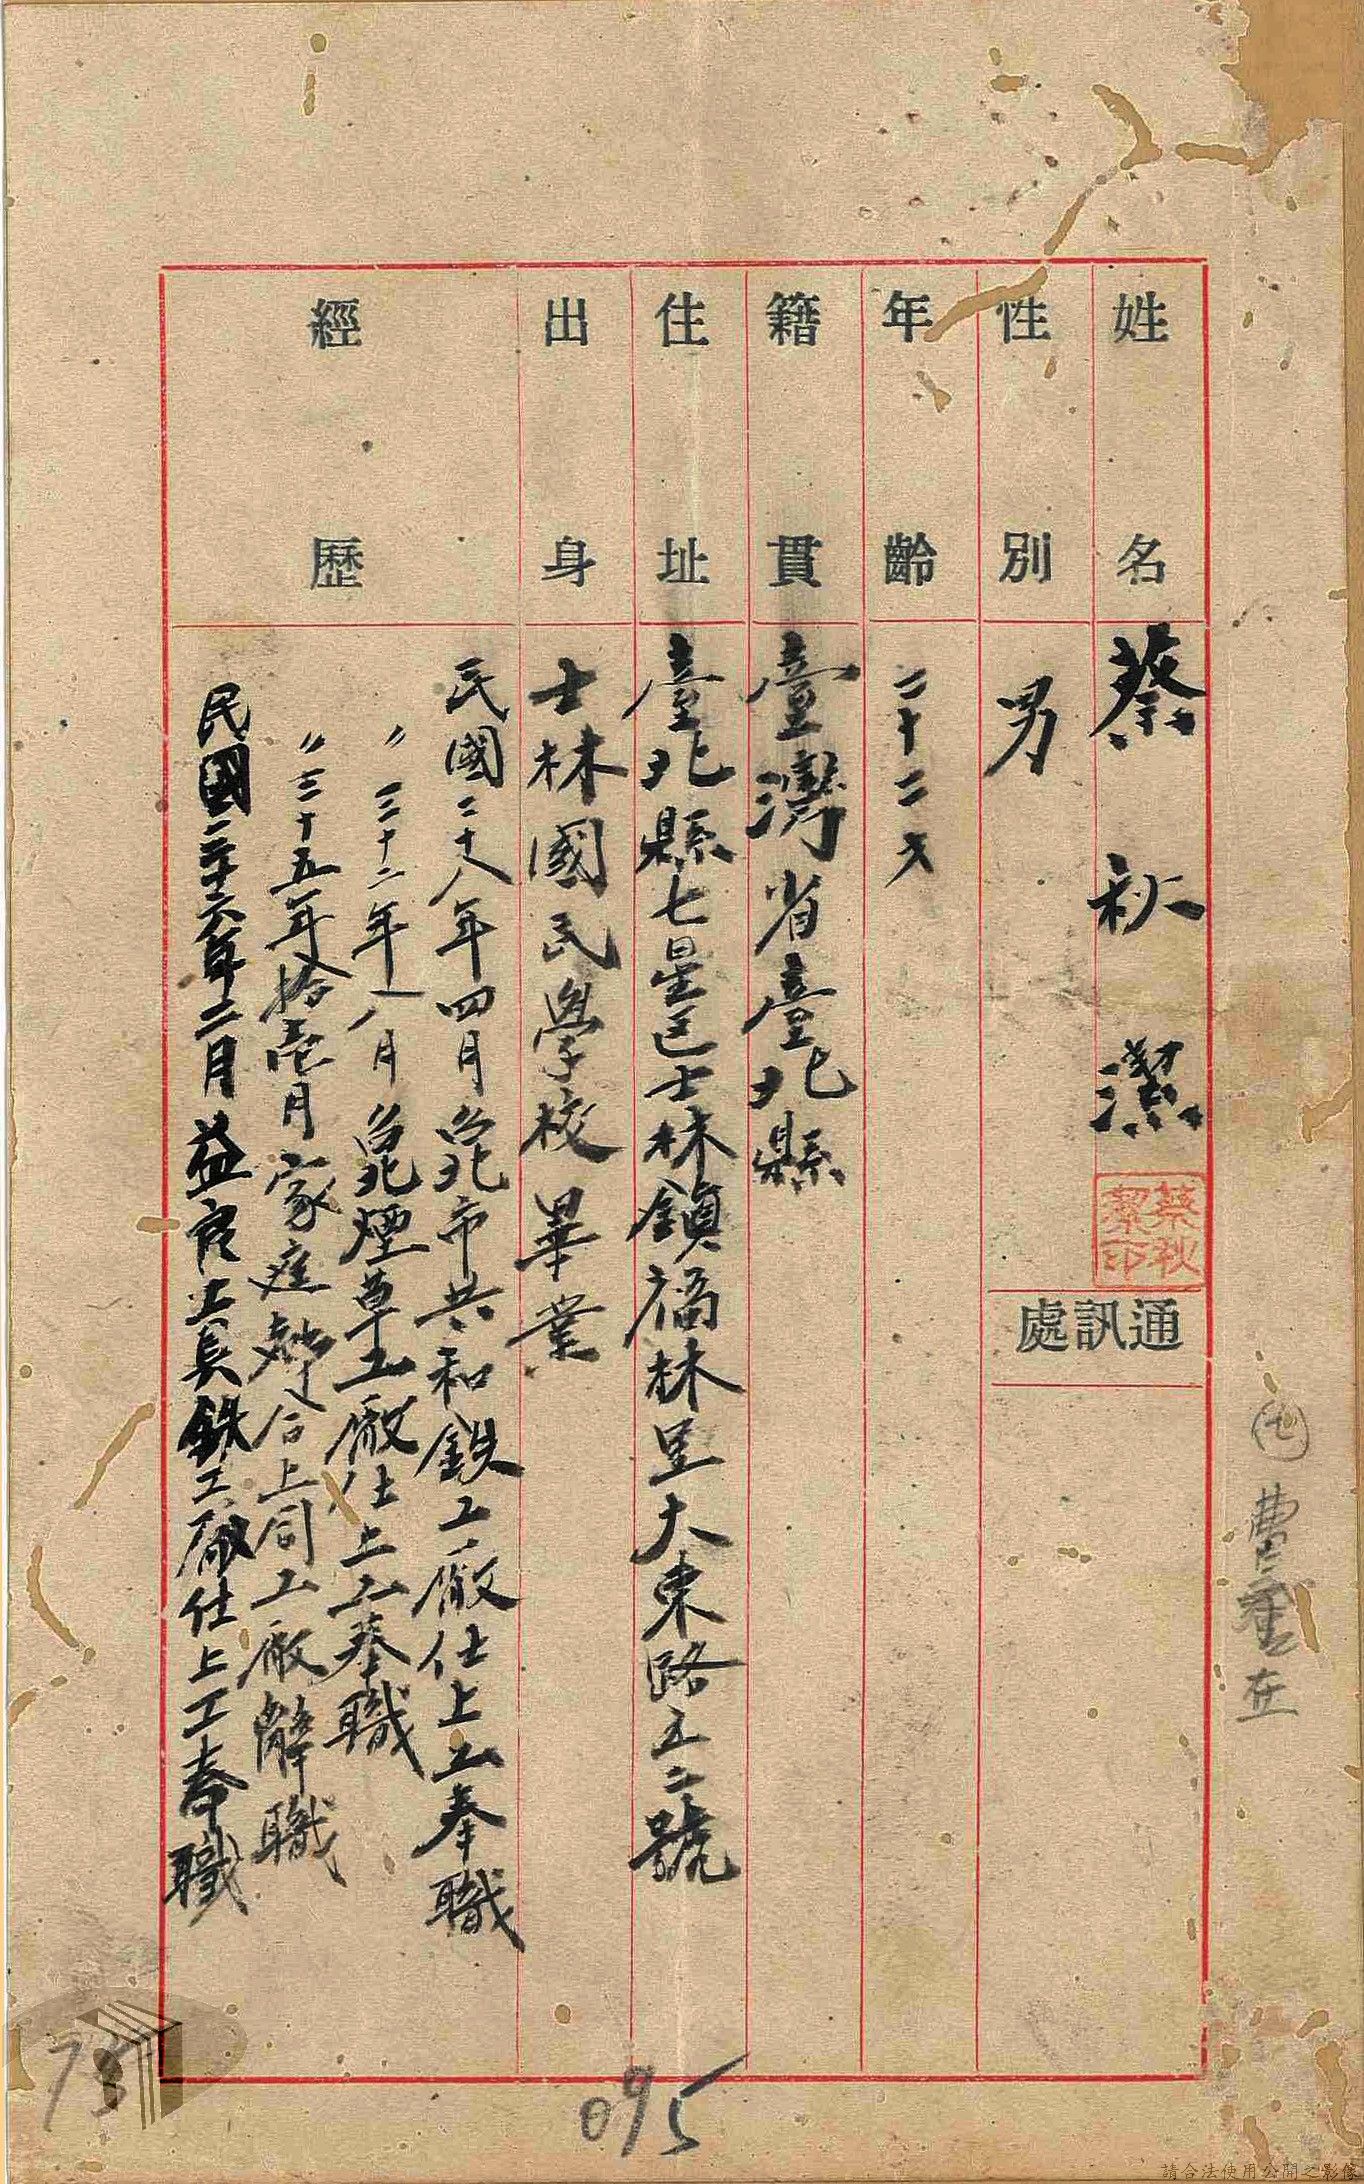 姓名 蔡秋潔
蔡秋
潔印
通訊處
性別 男
年齡 二十二才
籍貫 臺灣省臺北縣
住址 臺北縣七星區士林鎮福林里大東路五二號
出身 士林國民學校畢業
經歷
民國二十八年四月臺北市共和鉄工廠仕上工奉職
〃三十二年八月臺北煙草工廠仕上工奉職
〃三十五年拾壹月家庭都合上同工廠辭職
民國三十六年二月益良工具鉄工廠仕上工奉職
在
095
請合法使用公開之影像